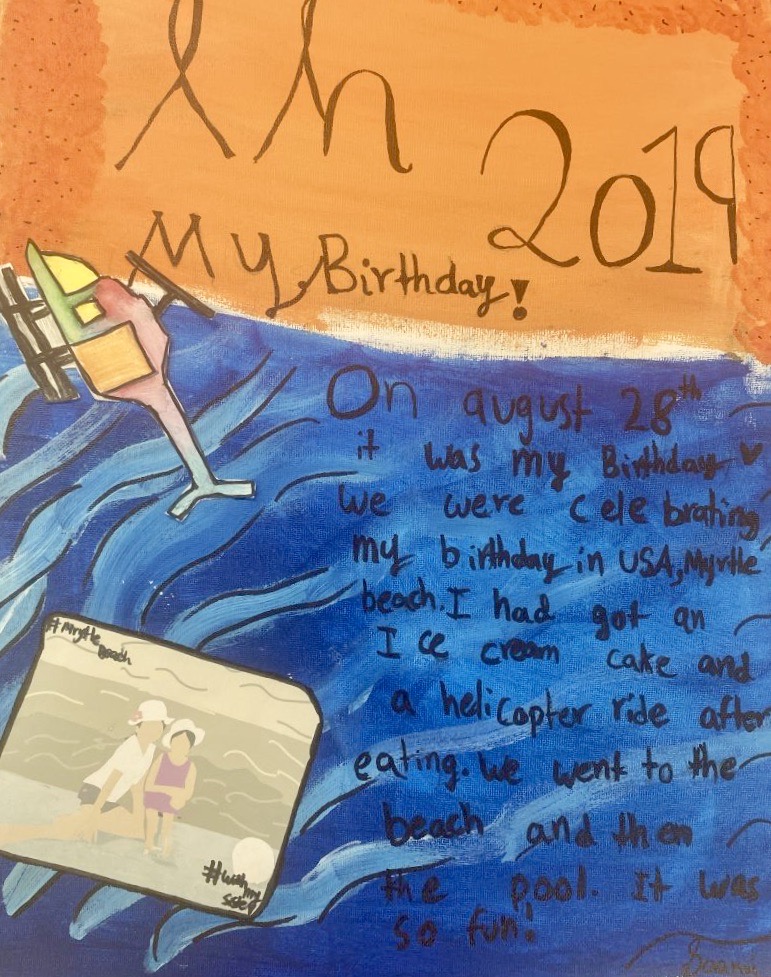 In 2019
My Birthday!
On august 28th
it was my Birthday ♥
we were celebrating
my birthday in USA, Myrtle
beach. I had got an
Ice cream cake and
a helicopter ride after
eating. We went to the
beach and then
the pool. It was
so fun!
#Myrtle
Beach
#with my
Sister